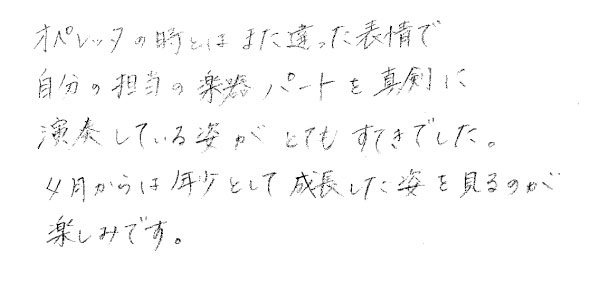 オペレッタの時とはまた違った表情で
自分の担当の楽器パートを真剣に
演奏している姿がとてもすてきでした。
4月からは年少として成長した姿を見るのが
楽しみです。